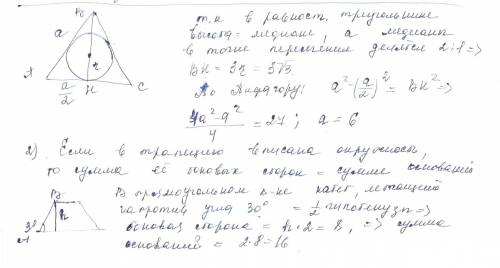 В
т.к в равност. треугольнике
а
высота = медиане, а медианы
в точке пересечения делятся 2:1 =>
r
BH = 3r = 3√3
А
С
а/2
H
По Пифагору: a² - (a/2)² = BH² =>
4a² - a² / 4 = 27 ; a = 6
2) Если в трапецию вписана окружность,
то сумма её боковых сторон = сумме оснований
В
В прямоугольном Δ-ке катет, лежащий
h
напротив угла 30° = 1/2 гипотенузы =>
30
А
боковая сторона = h · 2 = 8, => сумма
оснований = 2·8 = 16